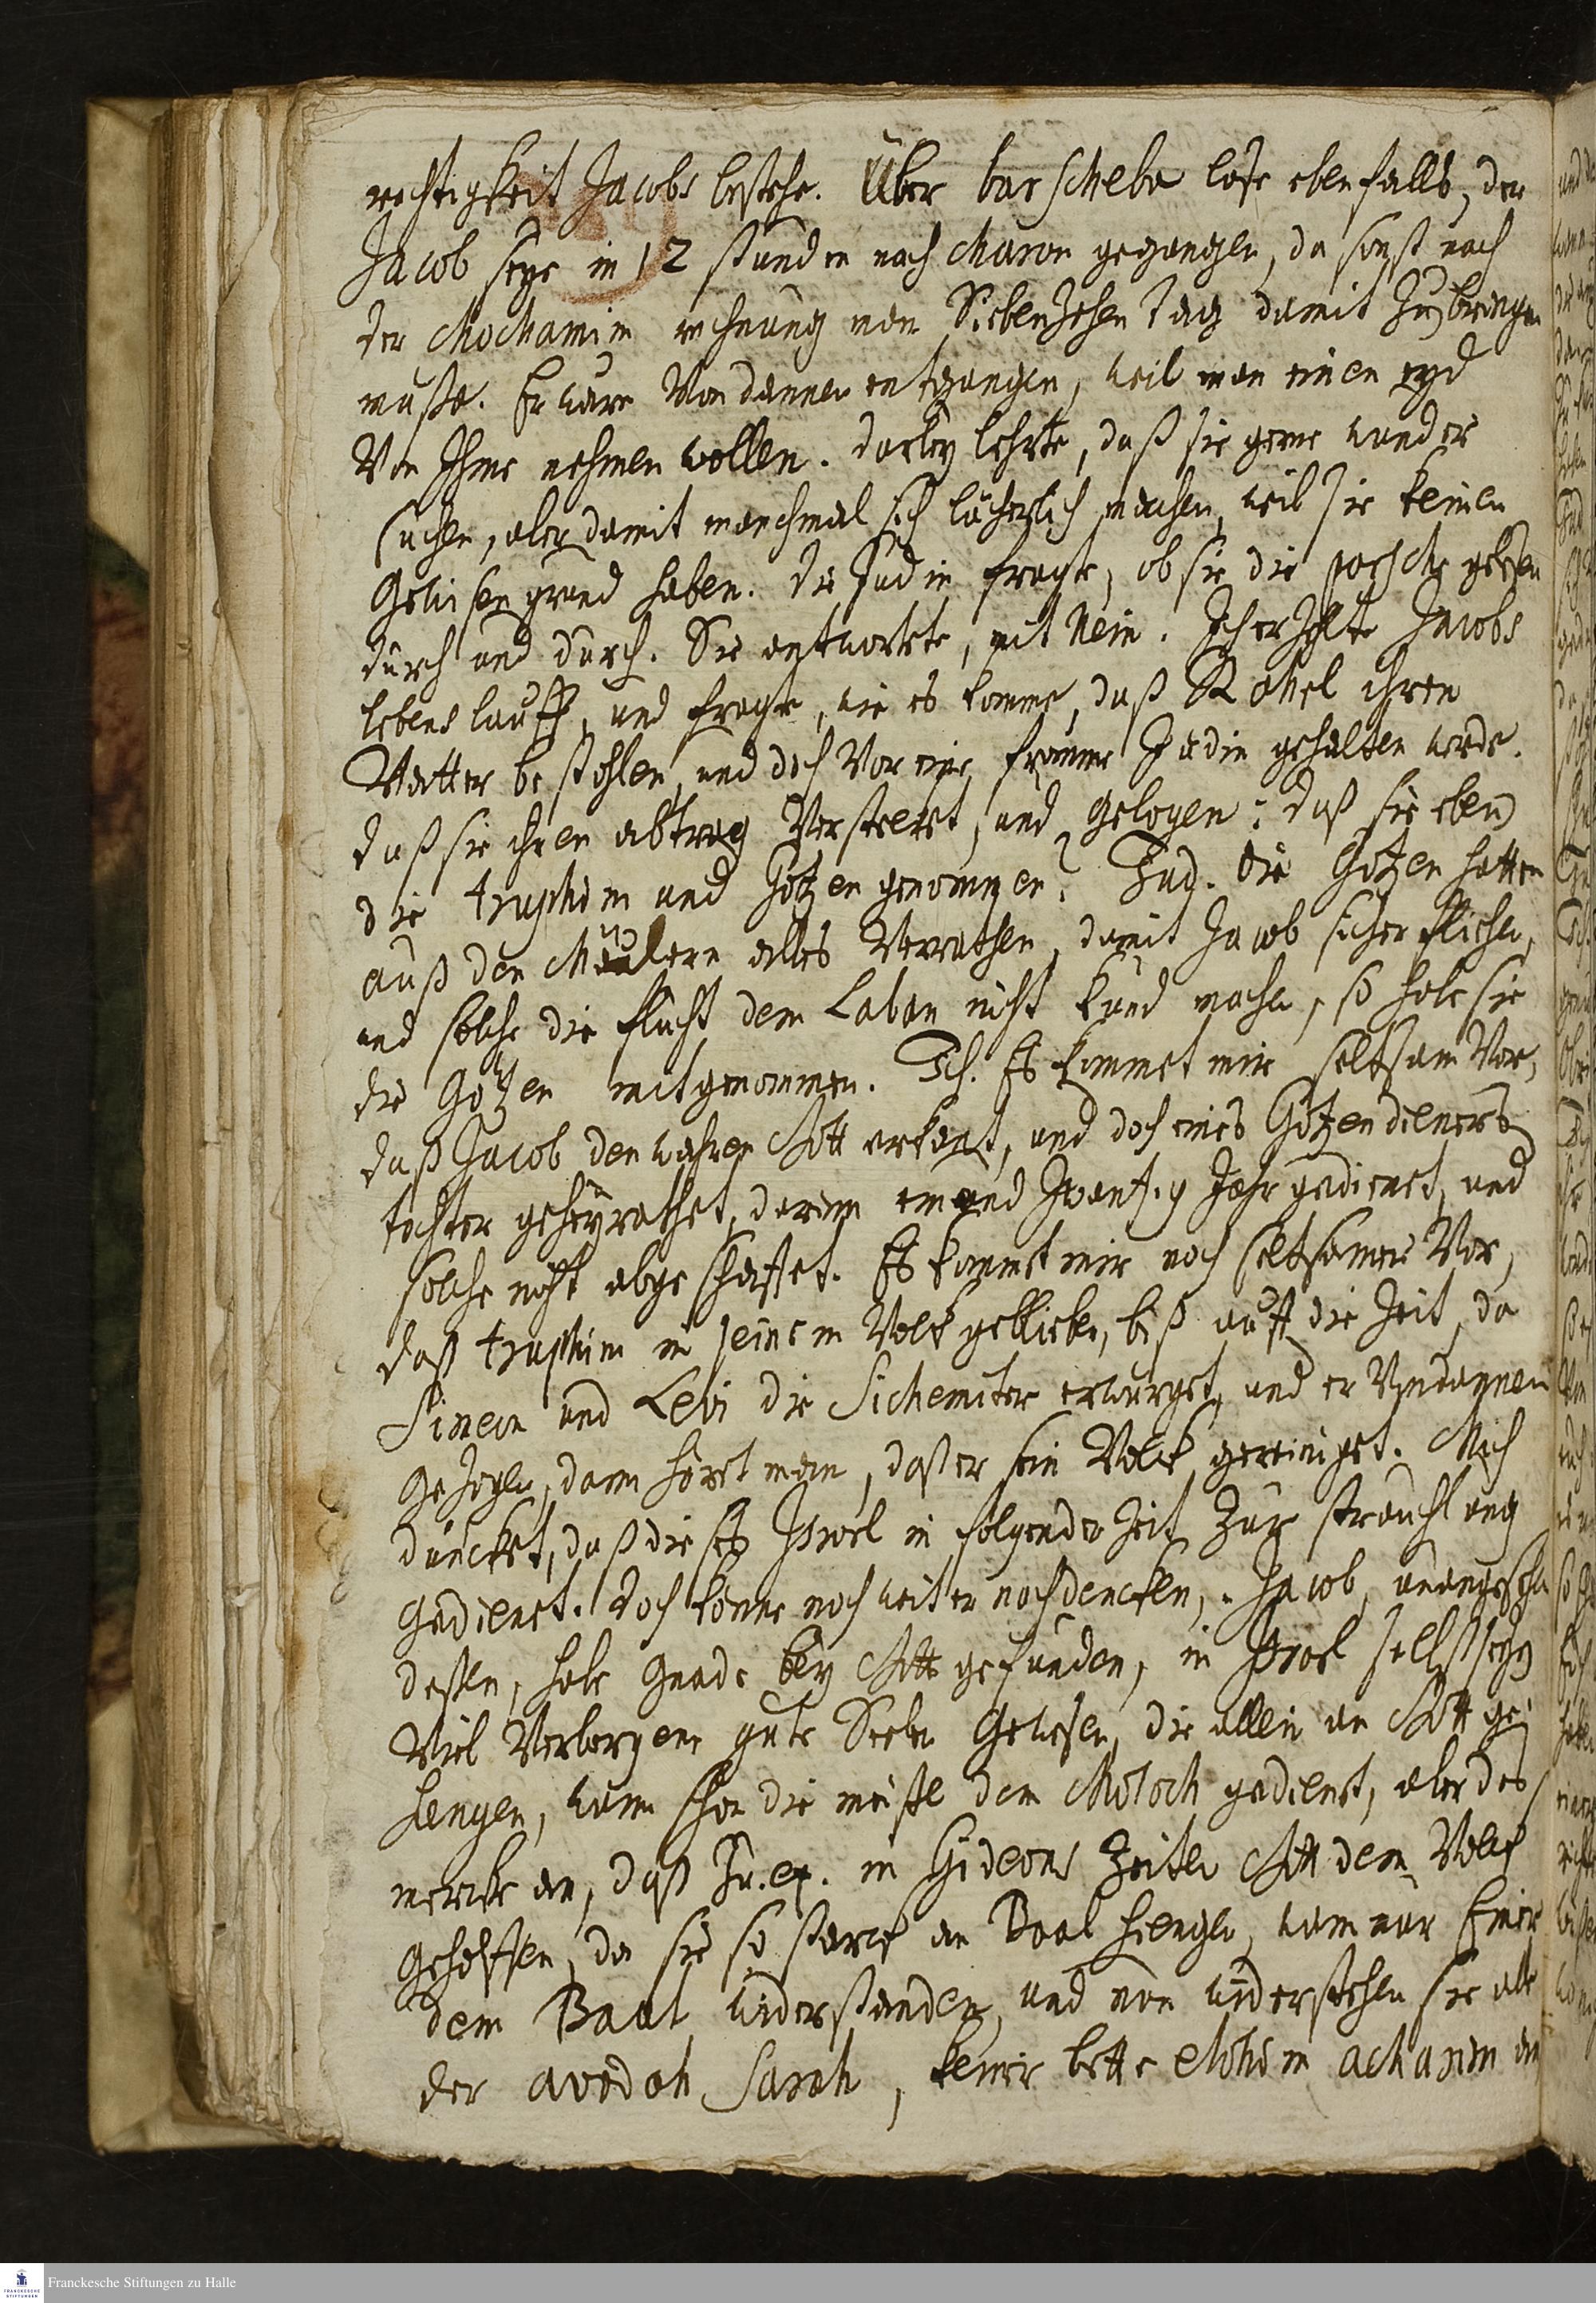 rechtigkeit Jacobs bestehe. Über barscheba lase ebenfalls, der
Jacob seye in 12 stunden nach Charan gegangen, da sonst nach
der Chochamim rechnung man Siebenzehen Tag damit zu bringen
muste. Er wäre Von dannen entgangen, weil man einen eyd
Von Ihme nehmen wollen. darbey lehrte, daß sie gerne wunder
suchen, aber damit manchmal sich lächerlich machen, weil sie keinen
gewisen grund haben. die Jüdin fragte, ob sie die parsche gelesen
durch und durch. Sie antwortete, mit Nein. Ich erzehlte Jacobs
lebens lauff, und fragte, wie es komme, daß Rahel ihren
Vatter bestohlen, und doch Vor eine fromme Jüdin gehalten werde.
daß sie ihren abtrag Versteckt, und gelogen: daß sie eben
die traphim und Götzen genommen? Jud. die Götzen hatten
auß den Mäulern alles Verrathen, damit Jacob sicher fliehe,
und solche die flucht dem Laban nicht kund mache, so habe sie
die Götzen mitgenommen. Ich. Es kommet mir seltsam Vor,
daß Jacob den wahren Gott erkant, und doch eines Götzendieners
tochter geheyrathet, darum ein und zwantzig Jahr gedienet, und
solche nicht abgeschaffet. Es kommet mir noch seltsamer Vor,
daß traphim in seinem Volck geblieben, biß auff die Zeit, da
Simeon und Levi die Sichemiter erwürget, und er Von dannen
gezogen, dann höret man, daß er sein Volck gereiniget. Mich
düncket, daß dieses Israel in folgender Zeit zur strauchlung
gedienet. Doch könne noch weiter nachdencken, Jacob, unangesehen
deßen, habe gnade bey Gott gefunden, in Israel selbst seyn
Viel Verborgene gute Seelen gewesen, die allein an Gott ge-
hangen, wann schon die meiste dem Moloch gedienet, aber das
mercke an, daß Zu. ex. in Gideons Zeiten Gott dem Volck
geholffen, da sie so starck an Baal hiengen, wann nur Einer
dem Baal widerstanden, und nun widerstehen sie alle
der avodah Sarah, keiner bette elohim acharim an
Franckesche Stiftungen zu Halle